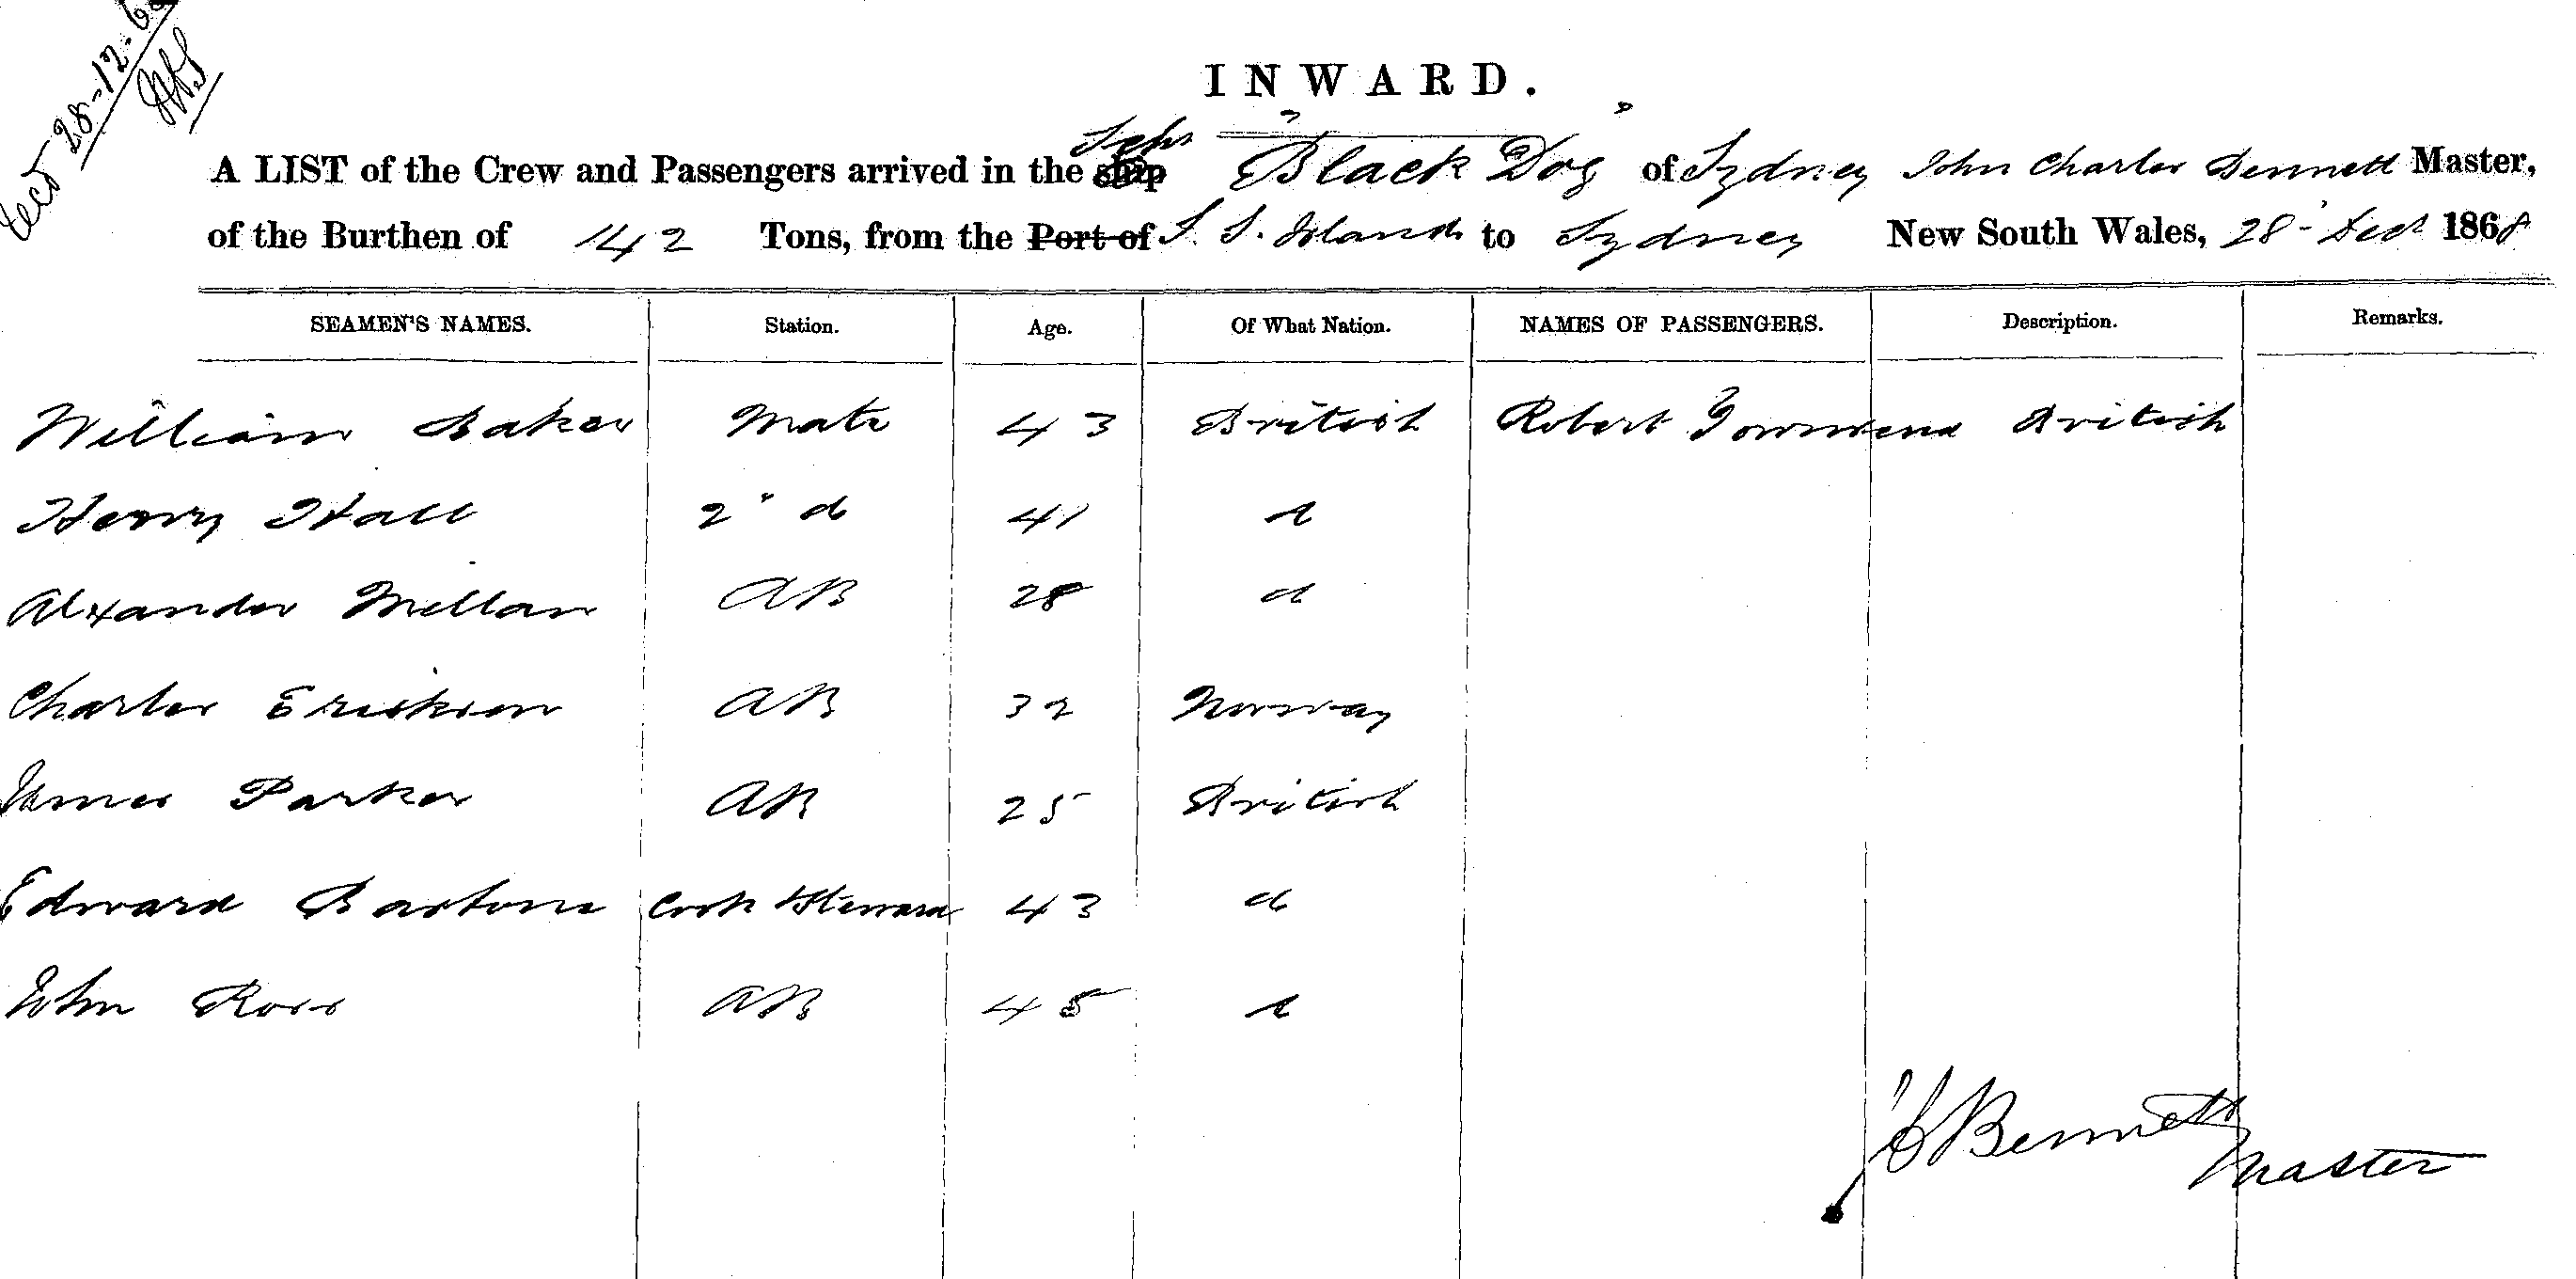 Recd 28-12-68
INWARD.
A LIST of the Crew and Passengers arrived in the ship Schr "Black Dog" of Sydney John Charles Bennett Master,
of the Burthen of 142 Tons, from the Port of S. S. Islands to Sydney New South Wales, 28 - Decr 1868
SEAMEN'S NAMES. Station. Age. Of What Nation. NAMES OF PASSENGERS. Description. Remarks.
William Baker Mate 43 British Robert Townsend British
Henry Hall 2" do 41 d
Alexander Millar AB 28 d
Charles Erickson AB 32 Norway
James Parker AB 25 British
Edward Bartone Cook & Steward 43 do
John Ross AB 45 d
JC Bennett
Master